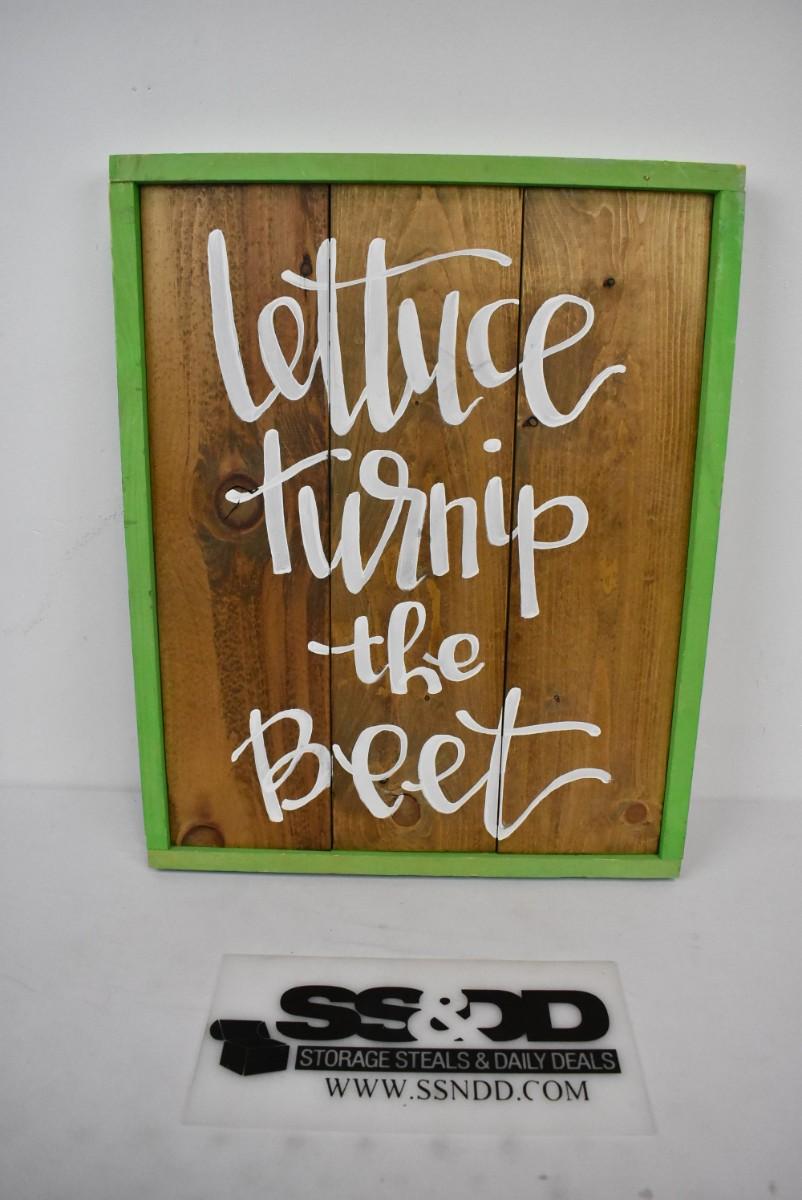 lettuce
turnip
the
Beet
SS&DD
STORAGE STEALS & DAILY DEALS
WWW.SSNDD.COM